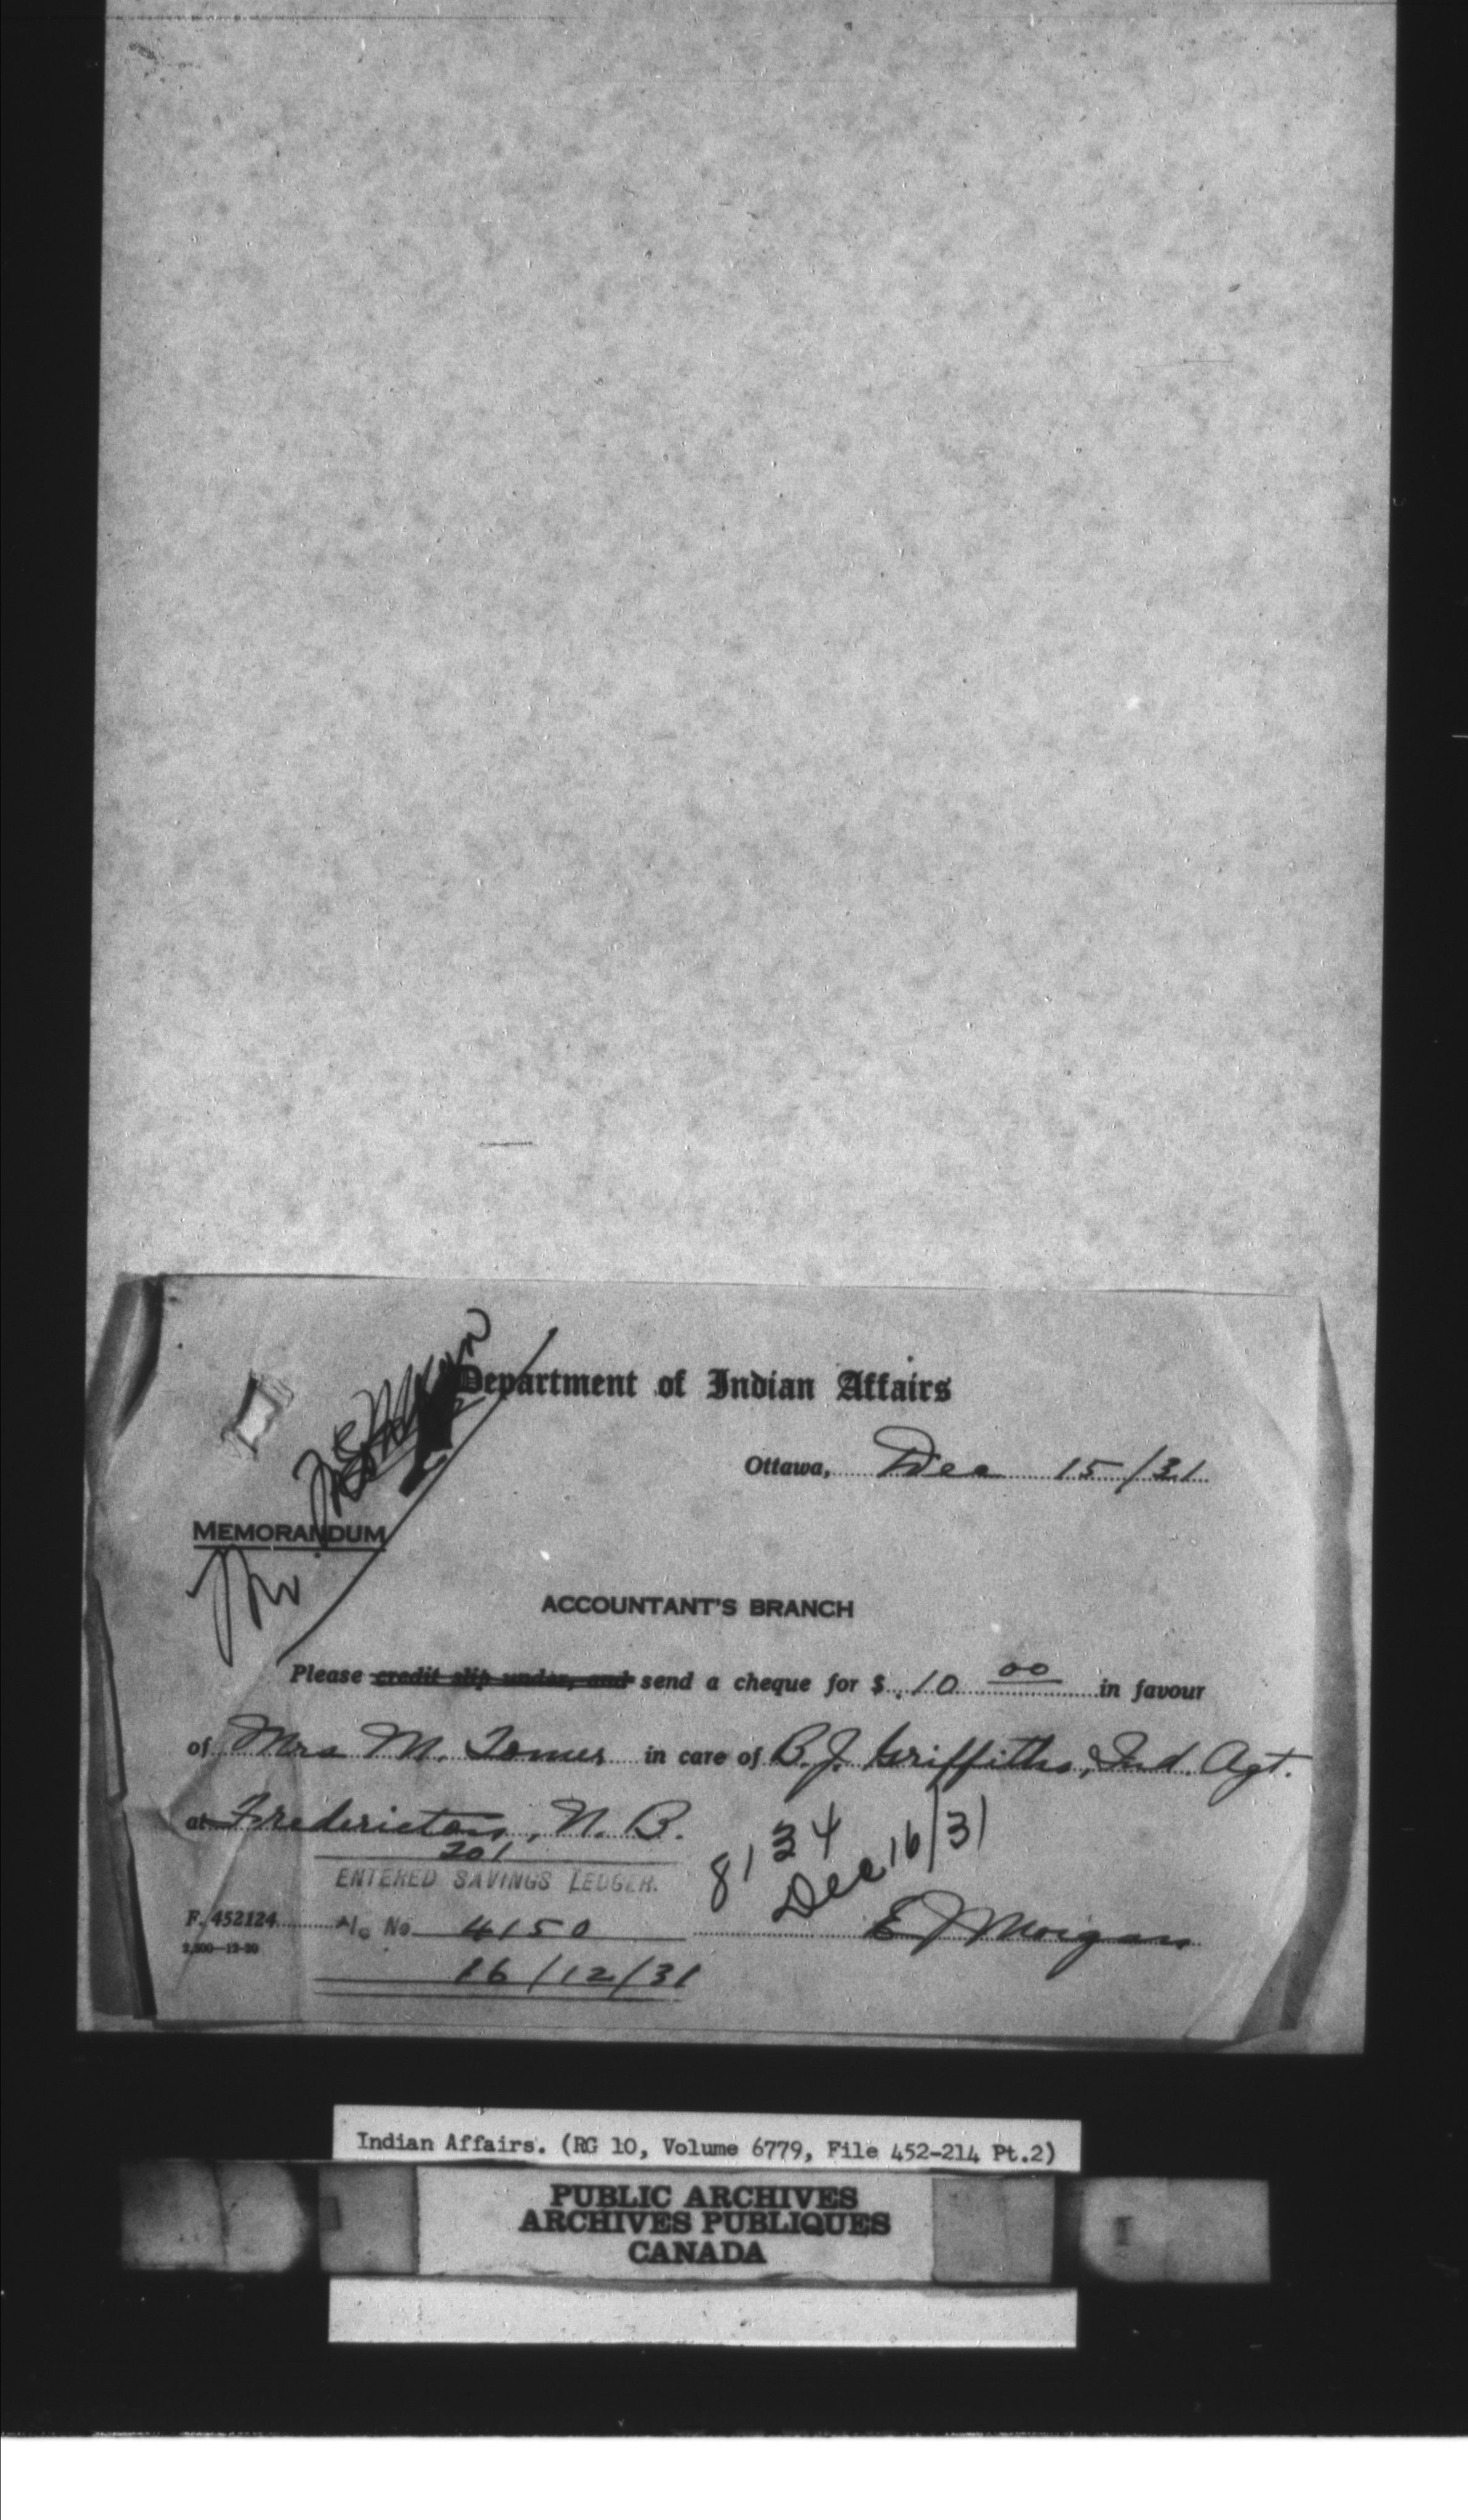 Department of Indian Affairs
Ottawa, Dec 15/31
MEMORANDUM
ACCOUNTANT'S BRANCH
Please credit slip under, and send a cheque for $ 10 00 in favour
of Mrs M. Tomer in care of B.J. Griffiths, Ind. Agt.
at Fredericton, N. B.
201
8134
Dec 16/31
ENTERED SAVINGS LEDGER.
F. 452124 A/c No 4150 E J Morgan
2,500—12-30
16/12/31
Indian Affairs. (RG 10, Volume 6779, File 452-214 Pt.2)
PUBLIC ARCHIVES
ARCHIVES PUBLIQUES
CANADA